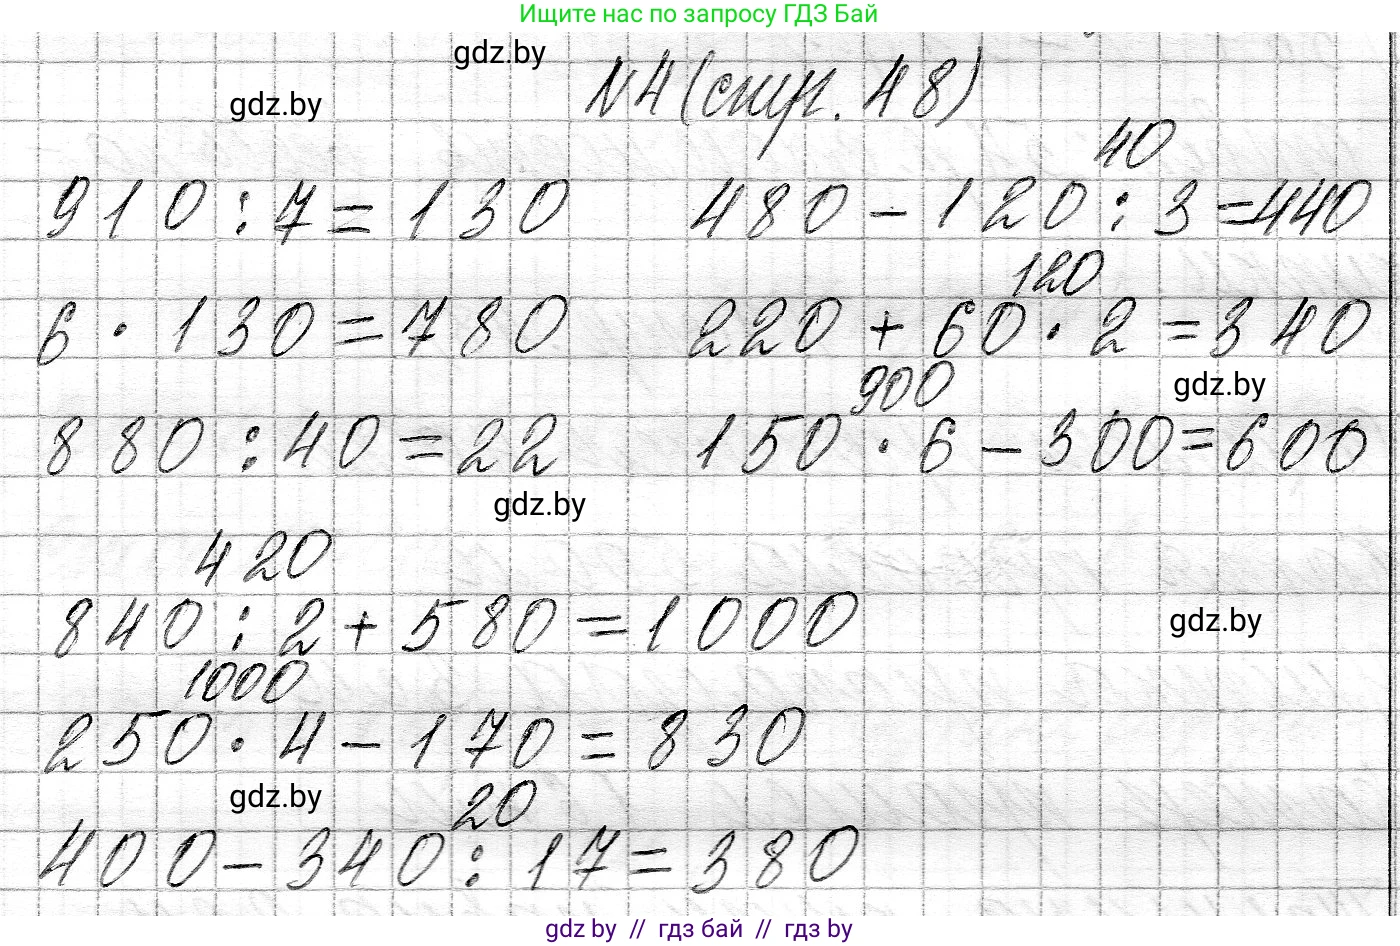 Ищите нас по запросу ГДЗ Бай
gdz.by
gdz.by
№4 (стр. 48)
910 : 7 = 130
40
480 - 120 : 3 = 440
6 · 130 = 780
120
220 + 60 · 2 = 340
gdz.by
880 : 40 = 22
900
150 · 6 - 300 = 600
gdz.by
420
840 : 2 + 580 = 1000
gdz.by
1000
250 · 4 - 170 = 830
gdz.by
20
400 - 340 : 17 = 380
gdz by // гдз бай // гдз by